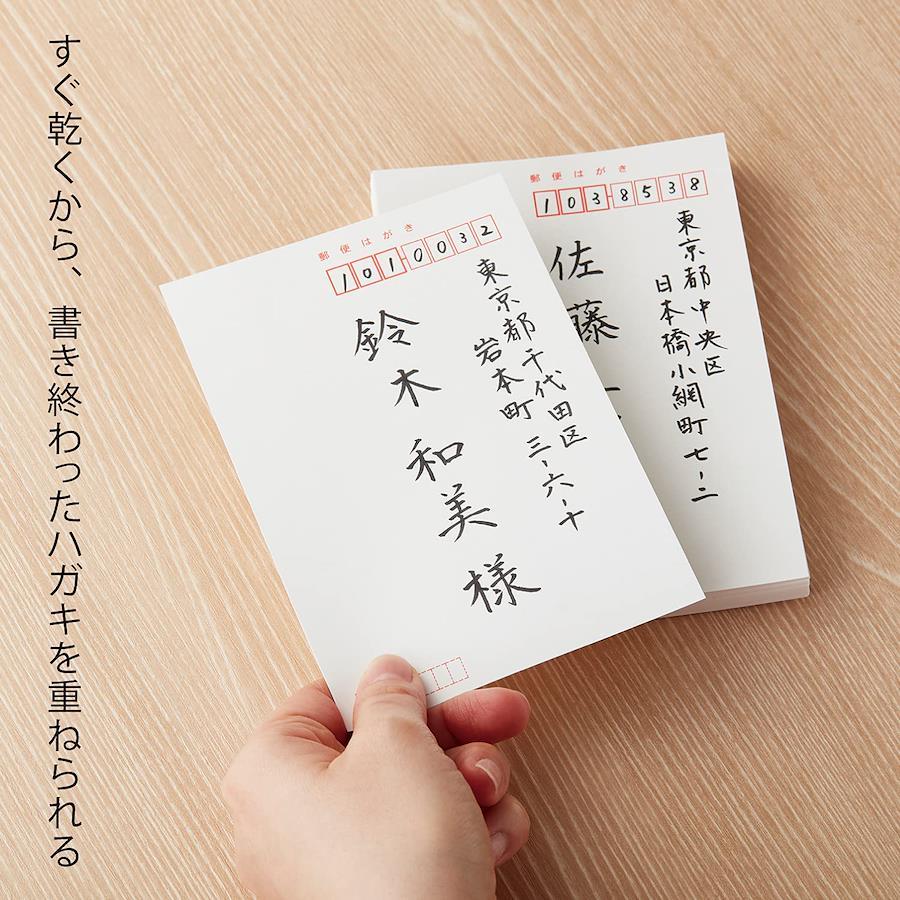 すぐ乾くから、書き終わったハガキを重ねられる
郵便はがき
101-0032
東京都千代田区
岩本町 三-六-十
鈴木 和美 様
郵便はがき
103-8538
東京都中央区
日本橋小網町 七-二
佐藤